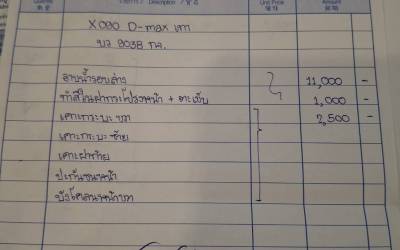 Quantity Description Unit Price Amount
X090 D-max เทา
บว 9038 กน.
อาบน้ำรอบล่าง 11,000 -
ทำสีในฝากระโปรงหน้า + ตะเข็บ 1,000 -
เคาะกระบะขวา 2,500 -
เคาะกระบะซ้าย
เคาะฝาท้าย
ปะกันชนหน้า
บังโคลนหน้าขวา